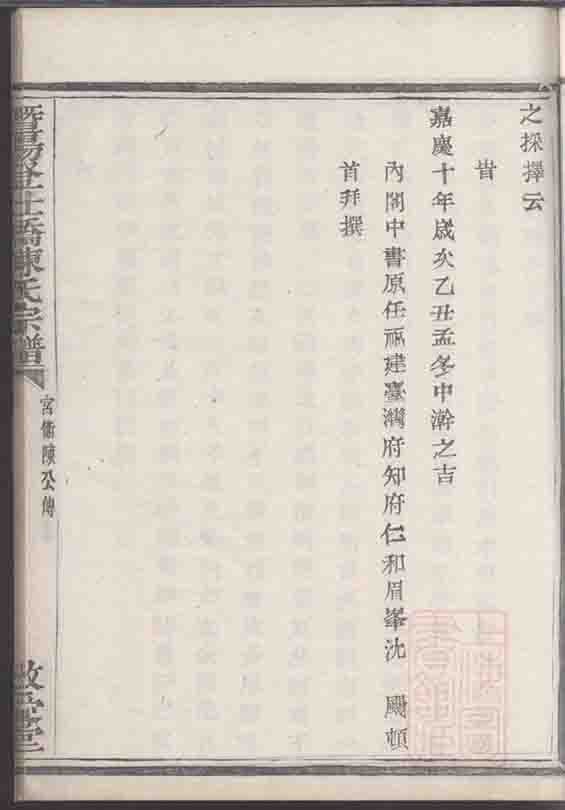 之採擇云
旹
嘉慶十年歲次乙丑孟冬中澣之吉
內閣中書原任福建臺灣府知府仁和眉峯沈 颺頓
首拜撰
暨陽登仕橋陳氏宗譜
宮衛陳公傳